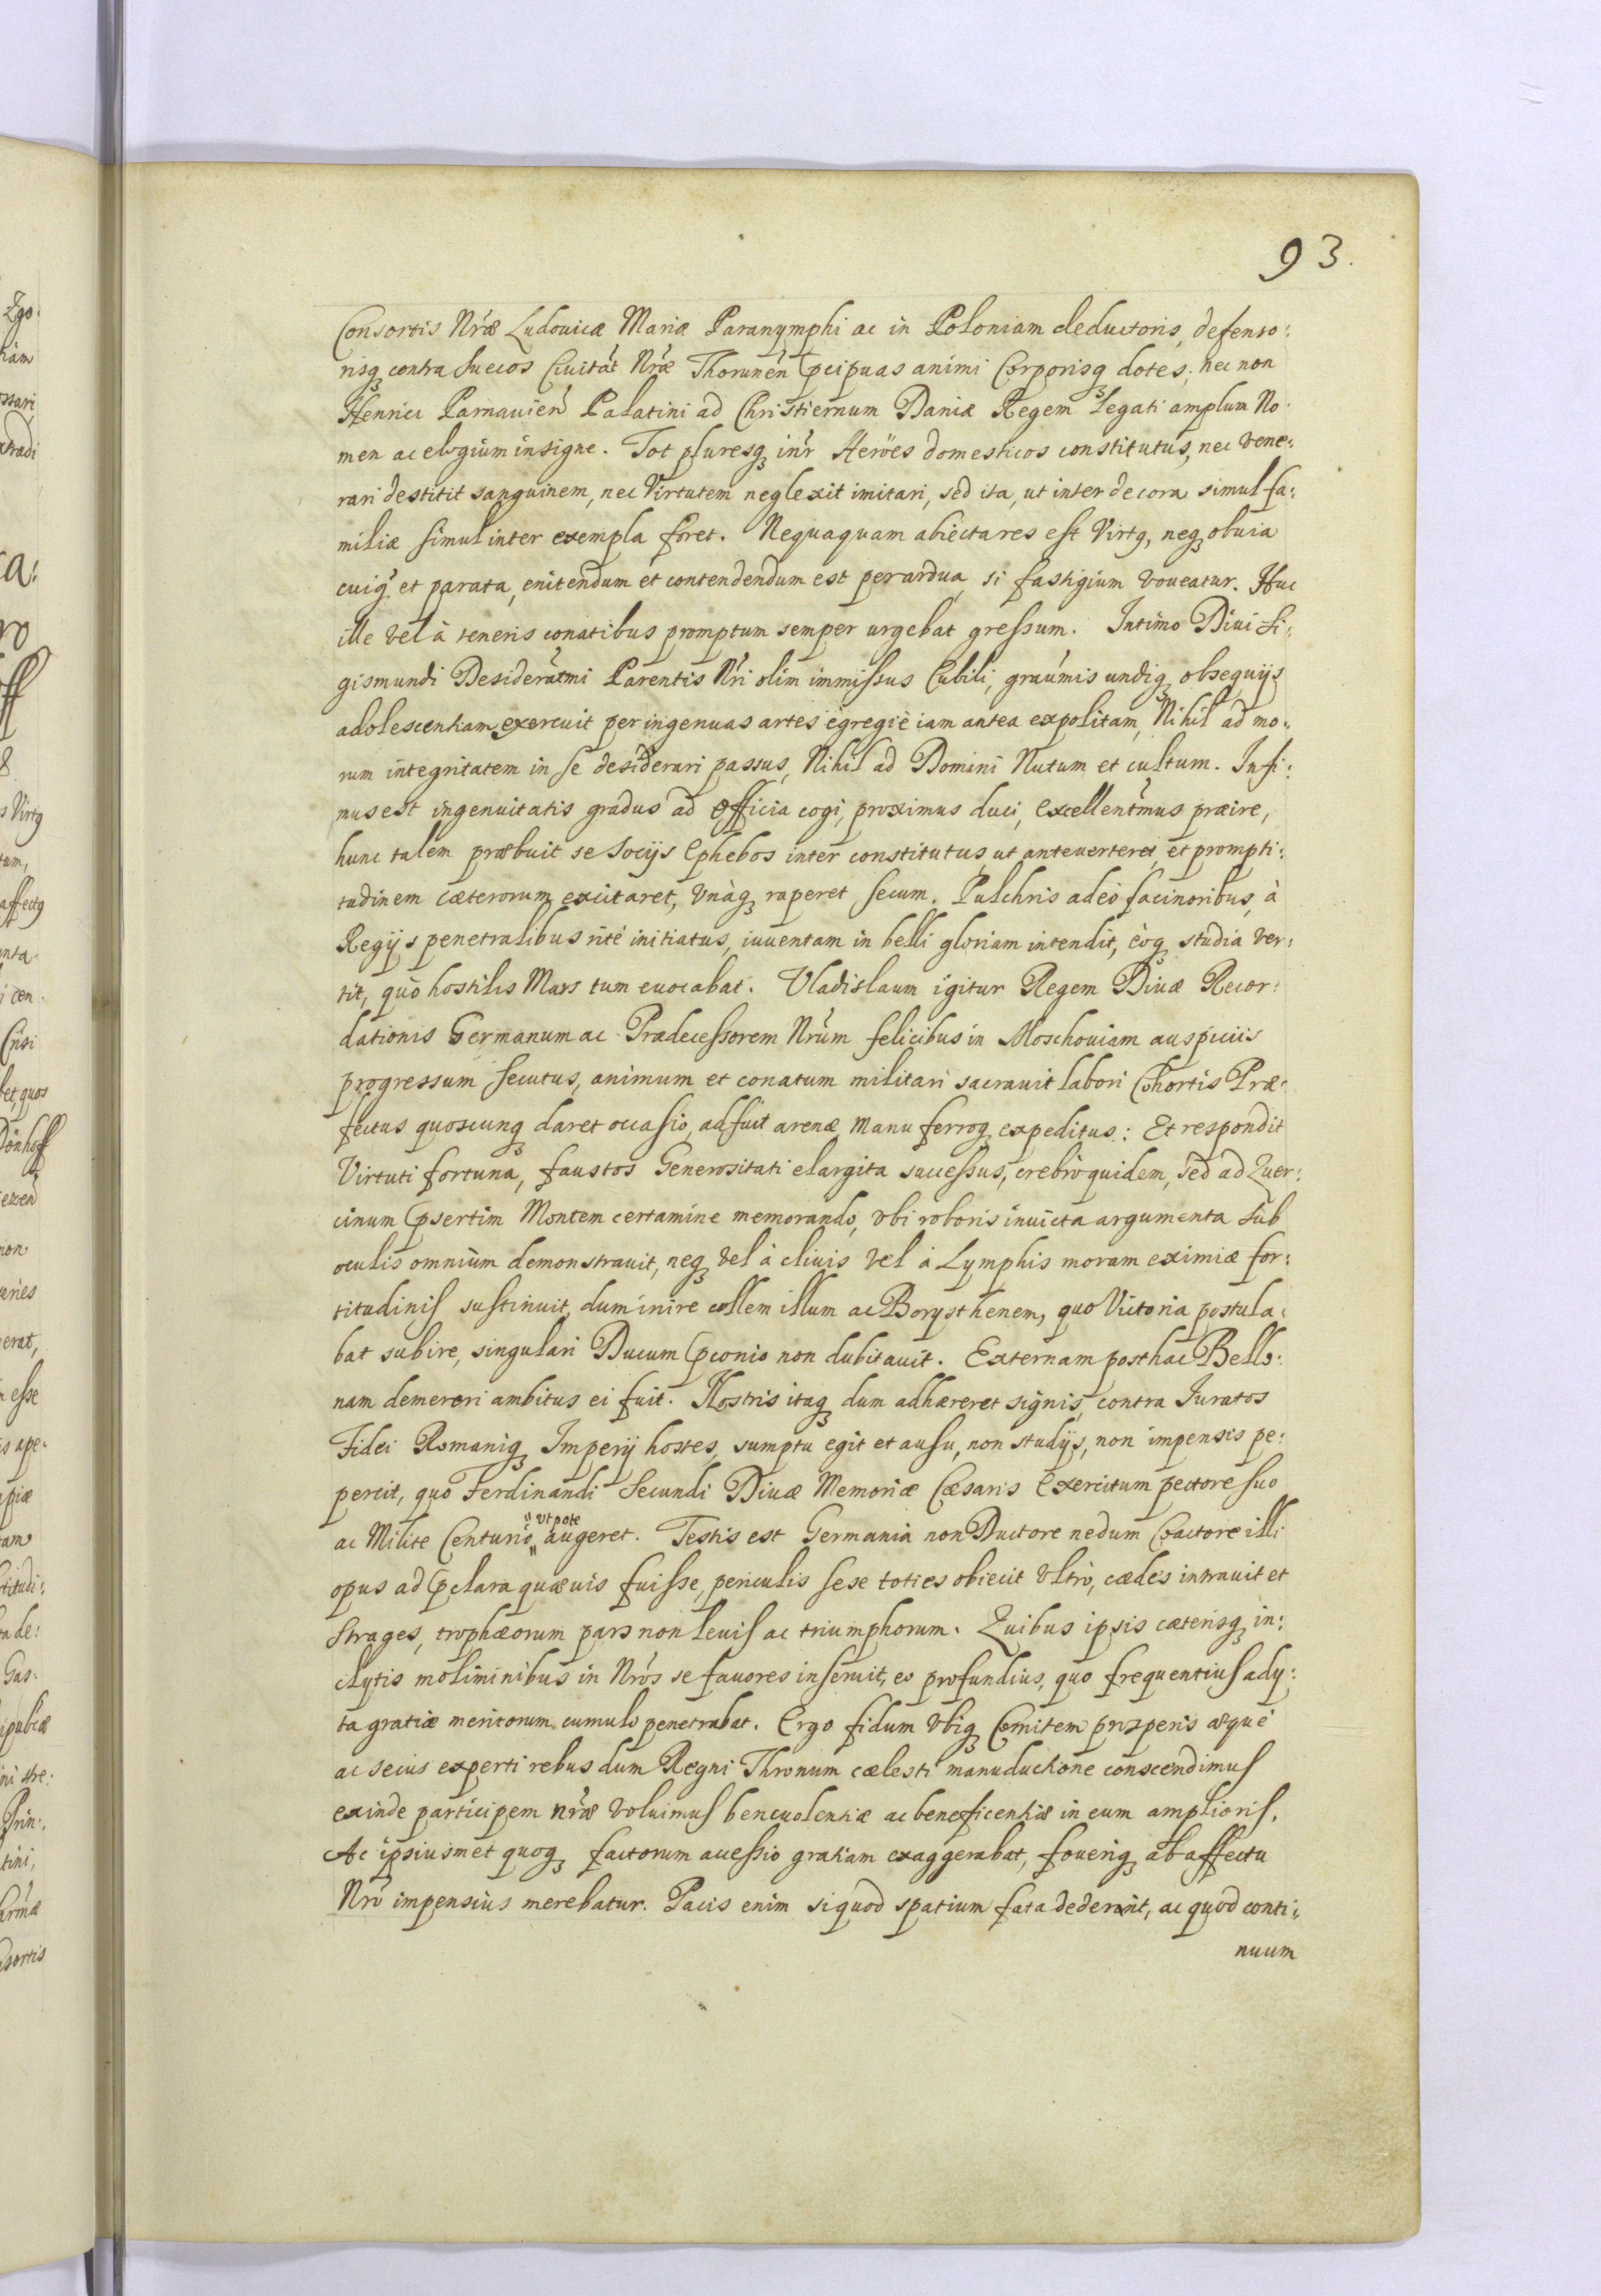 93.
Consortis Nr̃æ Ludouicæ Mariæ Paranymphi ac in Poloniam deductoris, defenso:
risq́ contra Suecos Ciuitát Nr̃æ Thorunen̄ p̄cipuas animi Corporisq́ dotes; nec non
Henrici Parnauien̄ Palatini ad Christiernum Daniæ Regem Legati amplum No:
men ac elogium insigne. Tot pluresq́ int̃r Heröes domesticos constitutus, nec vene:
rari destitit sanguinem, nec Virtutem neglexit imitari, sed ita, ut inter decora simul fa:
miliæ simul inter exempla foret. Nequaquam abiecta res est Virtq, neq́ obuia
cuiq́ et parata, enitendum et contendendum est per ardua, si fastigium voueatur. Huc
ille vel à teneris conatibus promptum semper urgebat gressum. Intimo Diui Si:
gismundi Desiderãtmi Parentis Nr̃i olim immissus Cubili, grau̇mis undiq́ obsequijs
adolescentiam exercuit per ingenuas artes egregiè iam antea expolitam, Nihil ad mo:
rum integritatem in se desiderari passus, Nihil ad Domini Nutum et cultum. Infi:
mus est ingenuitatis gradus ad officia cogi, proximus duci, excellent̃mus præire,
hunc talem præbuit se Socijs Ephebos inter constitutus, ut anteuerteret, et prompti:
tudinem cæterorum excitaret, vnàq́ raperet secum. Pulchris adeò facinoribus, à
Regijs penetralibus ritè initiatus, iuuentam in belli gloriam intendit, eòq́ studia ver:
tit, quò hostilis Mars tum euocabat. Vladislaum igitur Regem Diuæ Recor:
dationis Germanum ac Prædecessorem Nr̃um felicibus in Moschouiam auspiciis
progressum secutus, animum et conatum militari sacrauit labori Cohortis Præ:
fectus quoscunq́ daret occasio, adfuit arenæ manu ferroq́ expeditus: Et respondit
Virtuti fortuna, faustos Generositati elargita successus, crebrò quidem, sed ad Quer:
cinum p̄sertim Montem certamine memorando, vbi roboris inuicta argumenta sub
oculis omnium demonstrauit, neq́ vel à cliuis vel à Lymphis moram eximiæ for:
titudinis sustinuit, dum inire collem illum ac Borysthenem, quo Victoria postula:
bat subire, singulari Ducum p̄conio non dubitauit. Externam posthac Bello:
nam demereri ambitus ei fuit. Nostris itaq́ dum adhæreret signis, contra Iuratos
Fidei Romaniq́ Imperij hostes, sumptu egit et ausu, non studijs, non impensis pe:
percit, quo Ferdinandi Secundi Diuæ Memoriæ Cæsaris Exercitum pectore suo
ac Milite Centurio " vtpote augeret. Testis est Germania non Ductore nedum Coactore illi
opus ad p̄clara quæuis fuisse, periculis sese toties obiecit vltrò, cædes intrauit et
strages, trophæorum pars non leuis ac triumphorum. Quibus ipsis cæterisq́ in:
clytis moliminibus in Nr̃os se fauores inseruit, eo profundius, quo frequentius ady:
ta gratiæ meritorum cumulo penetrabat. Ergo fidum vbiq́ Comitem prosperis æquè
ac secius experti rebus dum Regni Thronum cælesti manuductione conscendimus
exinde participem nr̃æ voluimus beneuolentiæ ac beneficentiæ in eum amplioris.
Ac ipsiusmet quoq́ factorum accessio gratiam exaggerabat, foueriq́ ab affectu
Nr̃o impensius merebatur. Pacis enim siquod spatium fata dederunt, ac quod conti:
nuum